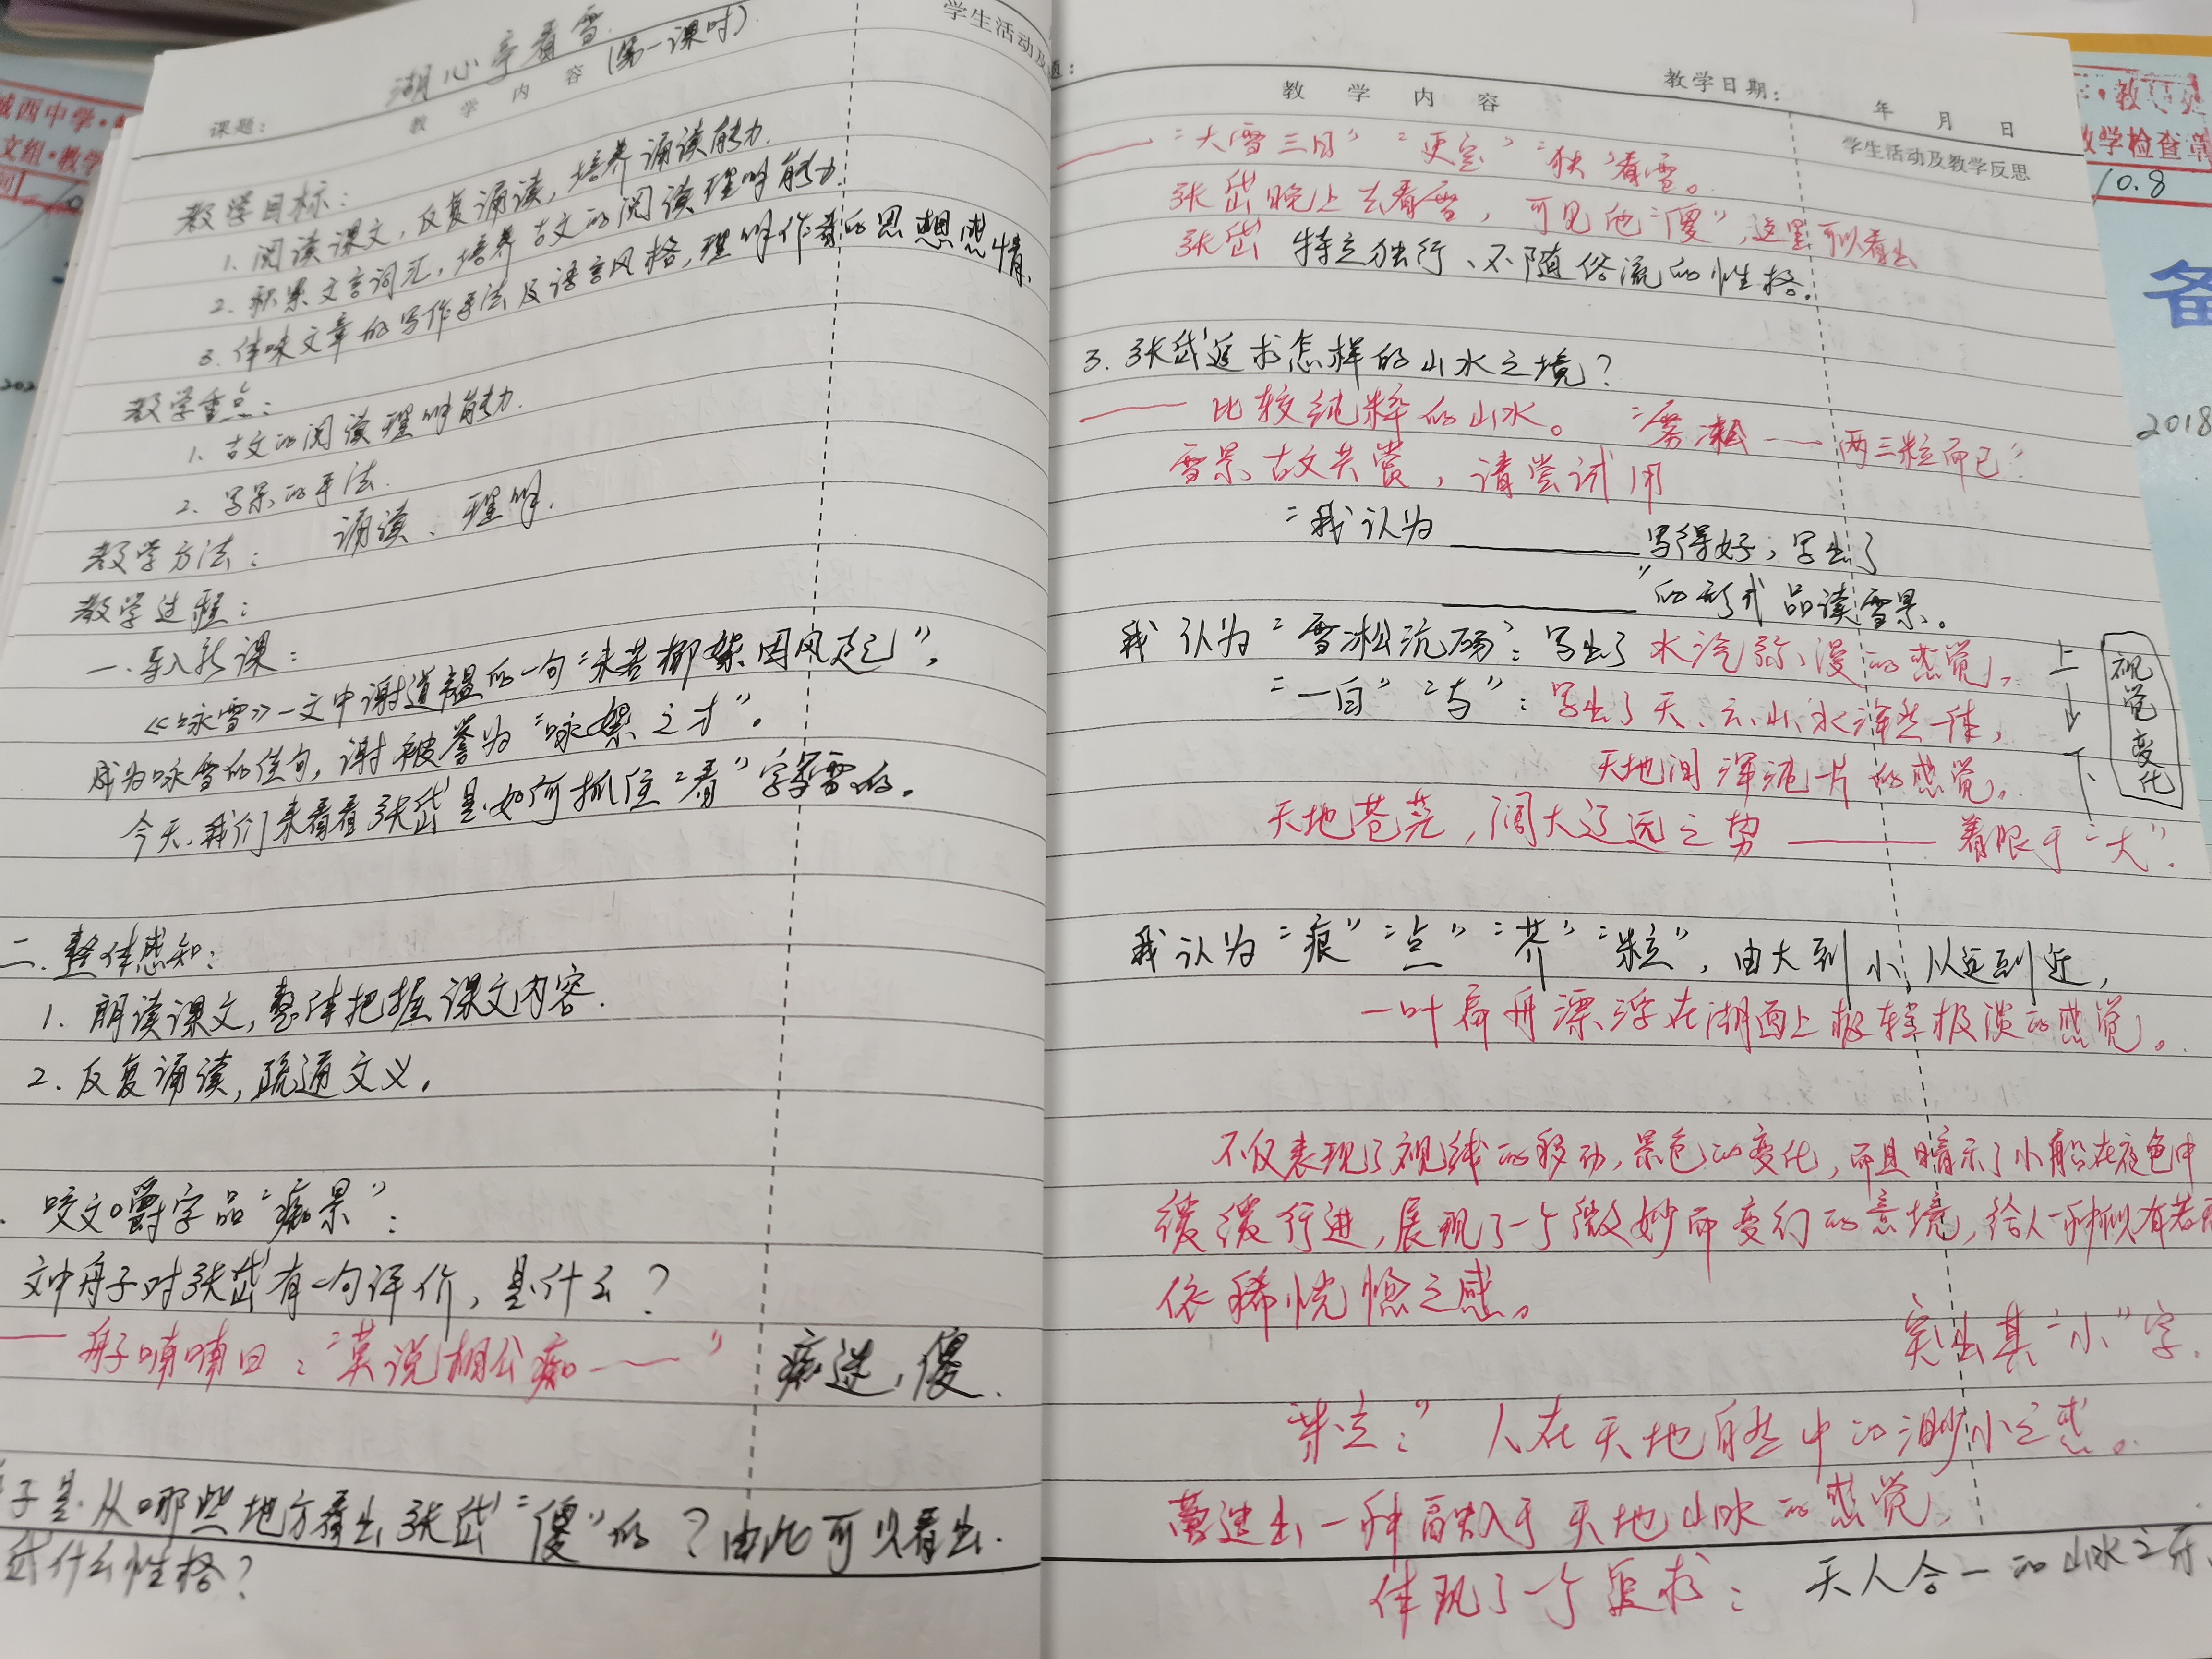 湖心亭看雪(第一课时)
课题:
教学内容
学生活动及
教学目标:
1. 阅读课文,反复诵读,培养诵读能力.
2. 积累文言词汇,培养古文的阅读理解能力.
3. 体味文章的写作手法及语言风格,理解作者的思想感情.
教学重点:
1. 古文的阅读理解能力.
2. 写景的手法.
教学方法: 诵读、理解.
教学过程:
一.导入新课:
《咏雪》一文中谢道韫的一句“未若柳絮因风起”,
成为咏雪的佳句,谢被誉为“咏絮之才”。
今天,我们来看看张岱是如何抓住“看”字写雪的.
二.整体感知:
1. 朗读课文,整体把握课文内容.
2. 反复诵读,疏通文义.
咬文嚼字品“痴景”:
文中舟子对张岱有一句评价,是什么?
——舟子喃喃曰:“莫说相公痴——” 痴迷,傻.
子是从哪些地方看出张岱“傻”的?由此可以看出.
岱什么性格?
题:
教学日期: 年 月 日
教学内容
学生活动及教学反思
——“大雪三日”“更定”“独”看雪。
张岱晚上去看雪,可见他“傻”,这里可以看出
张岱 特立独行、不随俗流的性格.
3. 张岱追求怎样的山水之境?
——比较纯粹的山水。“雾凇——两三粒而已”
雪景古文共赏,请尝试用
“我认为 写得好,写出了
”的形式品读雪景。
我认为“雪凇沆砀”:写出了水汽弥漫的感觉,
“一白”“与”:写出了天、云、山、水浑然一体,
天地间浑沌一片的感觉。
上→下
视觉变化
天地苍茫,阔大辽远之势——着眼于“大”.
我认为“痕”“点”“芥”“粒”,由大到小,从远到近,
一叶扁舟漂浮在湖面上极轻极淡的感觉。
不仅表现了视线的移动,景色的变化,而且暗示了小船在夜色中
缓缓行进,展现了一个微妙而变幻的意境,给人一种似有若
依稀恍惚之感。
突出其“小”字.
“粒:” 人在天地自然中的渺小之感。
营造出一种融入于天地山水的感觉,
体现了一个追求: 天人合一的山水之
城西中学
文组·教学
教学检查章
10.8
备
2018